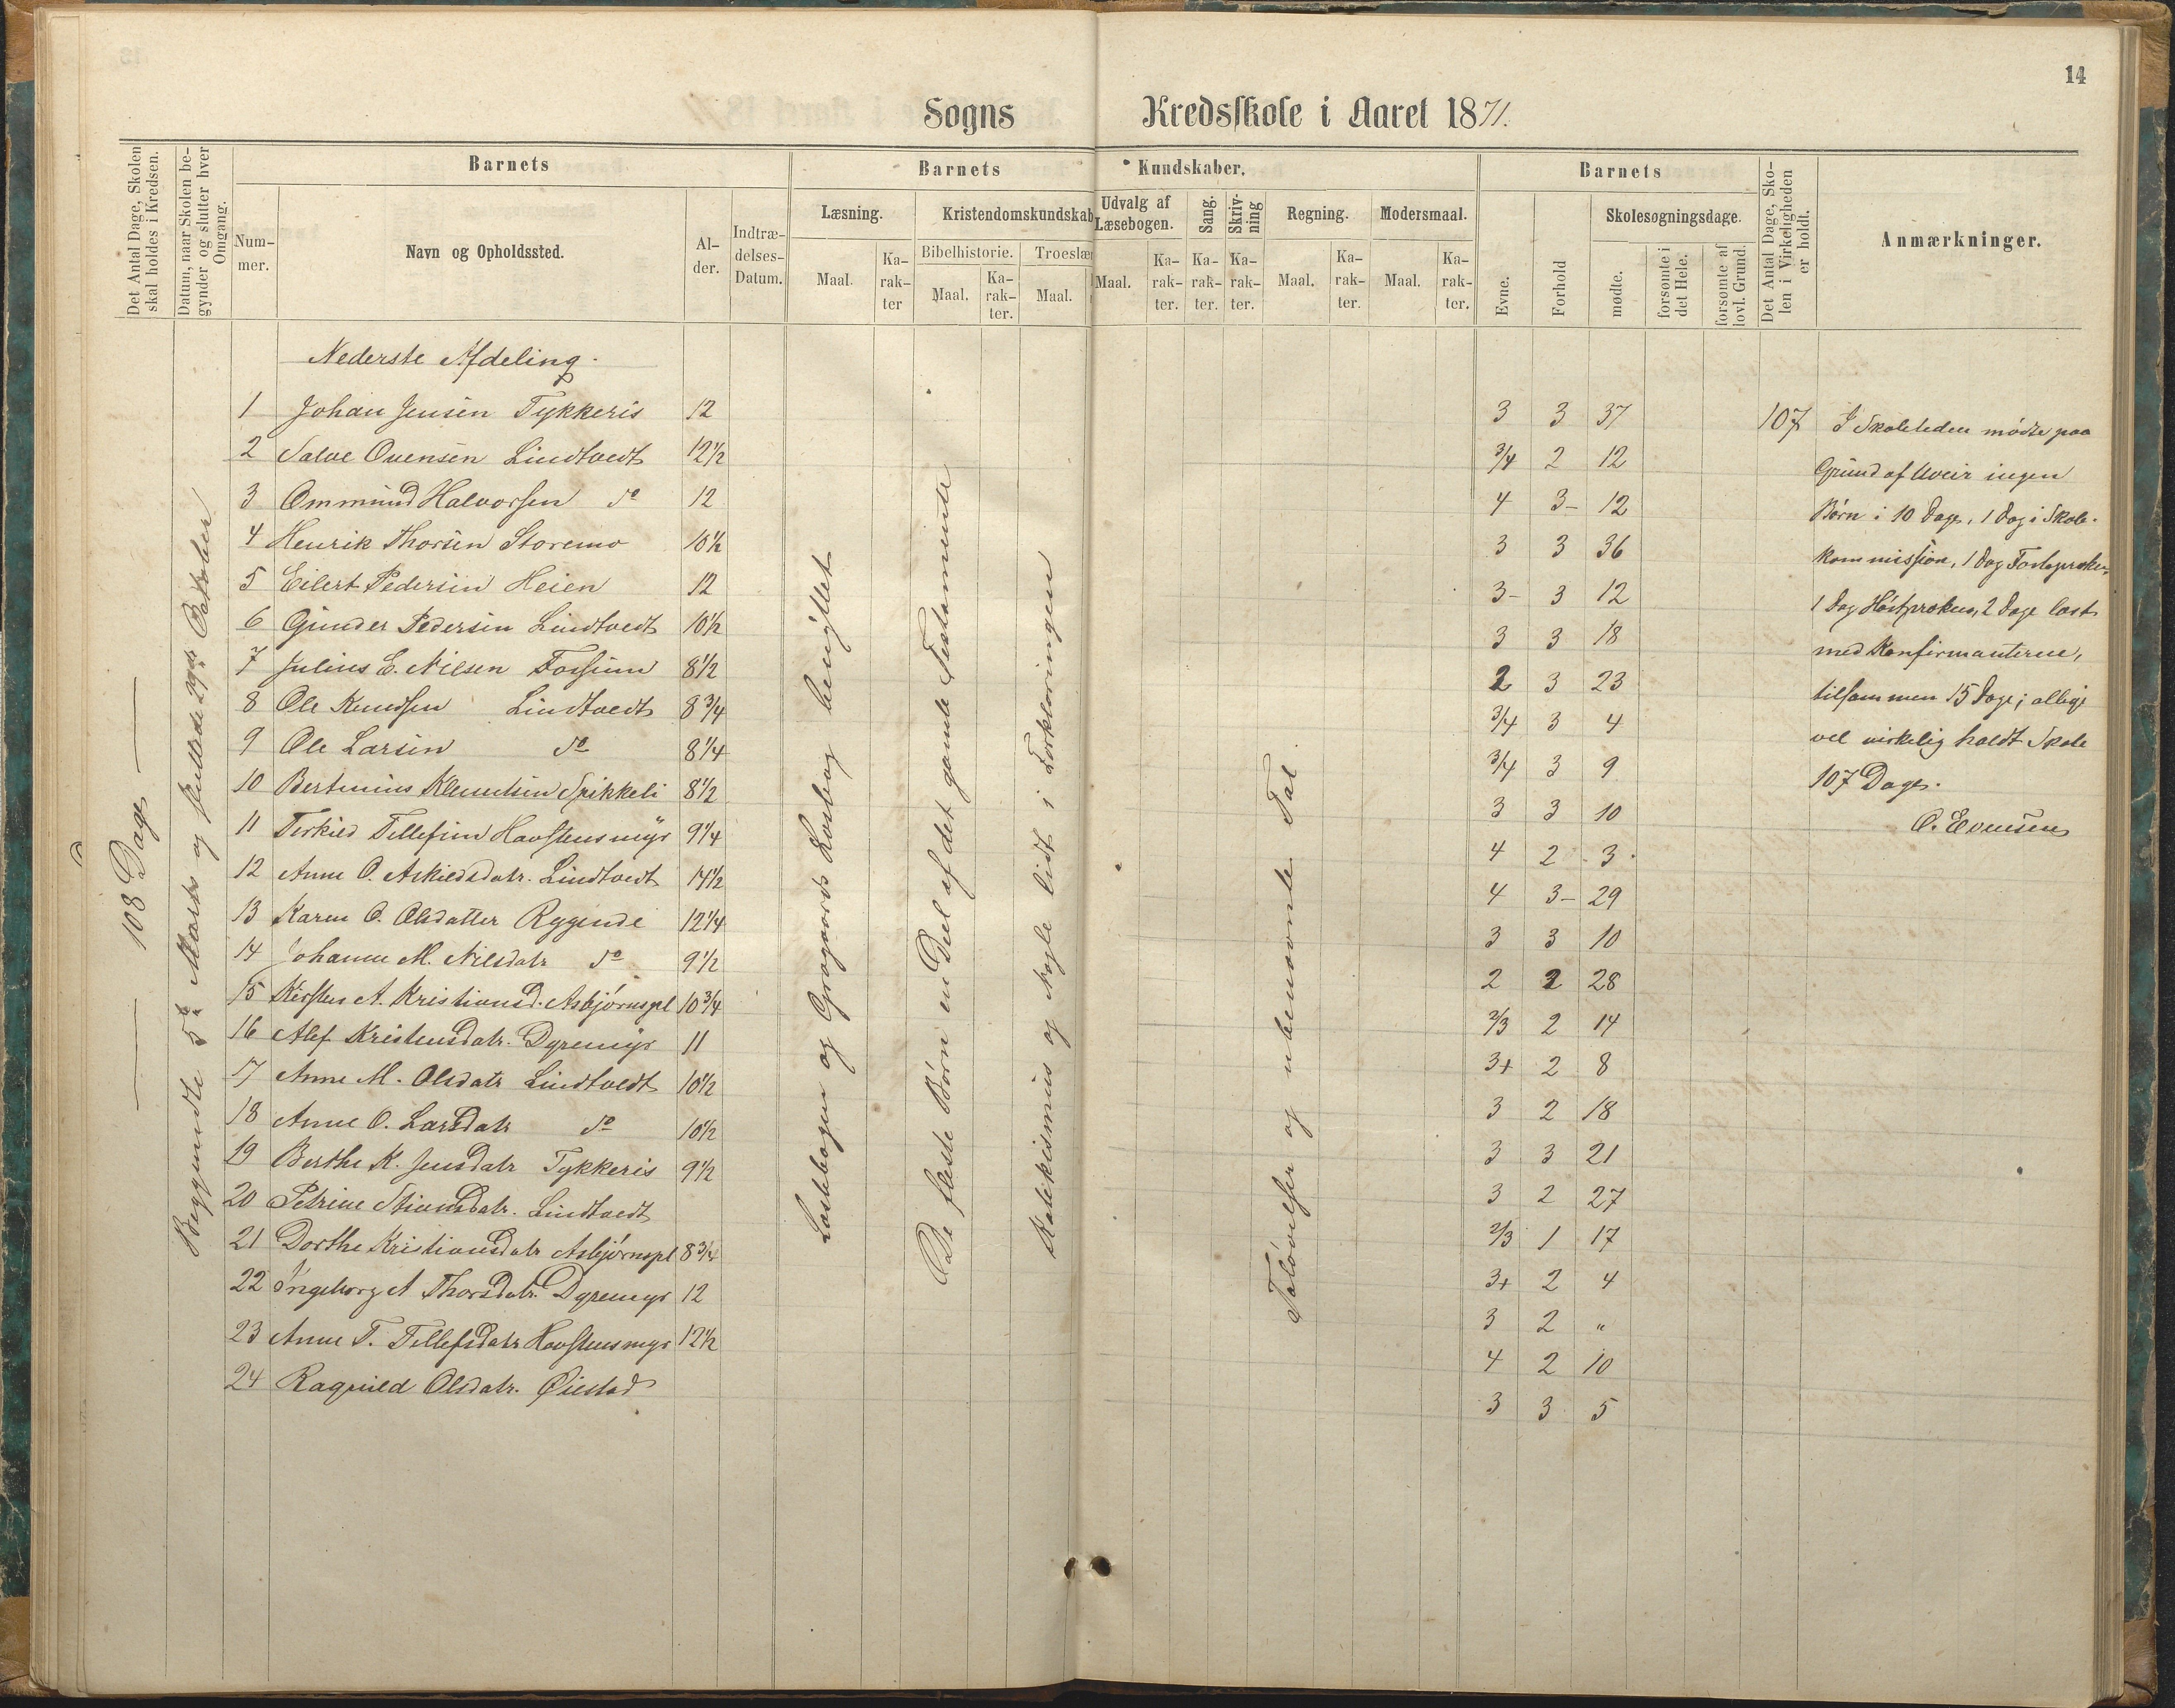 14
Sogns Kredsskole i Aaret 1871.
Det Antal Dage, Skolen skal holdes i Kredsen.
Datum, naar Skolen begynder og slutter hver Omgang.
Barnets
Nummer.
Navn og Opholdssted.
Alder.
Indtrædelses-Datum.
Barnets Kundskaber.
Læsning.
Maal.
Karakter
Kristendomskundskab
Bibelhistorie.
Maal.
Karakter.
Troeslær
Maal.
Udvalg af Læsebogen.
Maal.
Karakter.
Sang.
Karakter.
Skrivning
Karakter.
Regning.
Maal.
Karakter.
Modersmaal.
Maal.
Karakter.
Barnets
Evne.
Forhold
Skolesøgningsdage.
mødte.
forsømte i det Hele.
forsømte af lovl. Grund.
Det Antal Dage, Skolen i Virkeligheden er holdt.
Anmærkninger.
108 Dage
Begyndte 5te Marts og sluttede 29de Oktober
Nederste Afdeling.
1 Johan Jensen Tykkeris 12 3 3 37
2 Salve Ovensen Lindtvedt 12½ 3/4 2 12
3 Ommund Halvorsen do 12 4 3- 12
4 Henrik Thorsen Storemo 10½ 3 3 36
5 Eilert Pedersen Heien 12 3- 3 12
6 Gunder Pedersen Lindtvedt 10½ 3 3 18
7 Julius E. Nilsen Fossum 8½ 2 3 23
8 Ole Knudsen Lindtvedt 8¾ 3/4 3 4
9 Ole Larsen do 8¼ 3/4 3 9
10 Bertinius Klemetsen Spikkeli 8½ 3 3 10
11 Terkied Tellefsen Havstensmyr 9¼ 4 2 3
12 Anne O. Askiedsdatr. Lindtvedt 14½ 4 3- 29
13 Karen O. Olsdatter Rygende 12¼ 3 3 10
14 Johanne M. Nilsdatr do 9½ 2 2 28
15 Kirsten A. Kristiansd. Asbjørnspl 10¾ 2/3 2 14
16 Alef Kristensdatr. Dyremyr 11 3+ 2 8
17 Anne M. Olsdatr Lindtvedt 10½ 3 2 18
18 Anne O. Larsdatr do 10½ 3 3 21
19 Berthe K. Jensdatr Tykkeris 9½ 3 2 27
20 Petrine Stiansdatr. Lindtvedt 2/3 1 17
21 Dorthe Kristiansdatr Asbjørnspl 8¾ 3+ 2 4
22 Ingeborg A Thorsdatr. Dyremyr 12 3 2 "
23 Anne T. Tellefsdatr Havstensmyr 12½ 4 2 10
24 Ragnild Olsdatr. Øiestad 3 3 5
Læsebogen og Grøgaards Læsebog benyttet
De fleste Børn en Deel af det gamle Testamente
Katekismus og Nogle lidt i Forklaringen
Taløvelser og ubenævnte Tal
107
I Skoletiden mødte paa
Grund af Uveir ingen
Børn i 10 Dage, 1 Dag i Skole-
kommission, 1 Dag
1 Dag Høstprøken, 2 Dage læst
med Konfirmanterne,
tilsammen 15 Dage; allige
vel virkelig holdt Skole
107 Dage.
O. Evensen